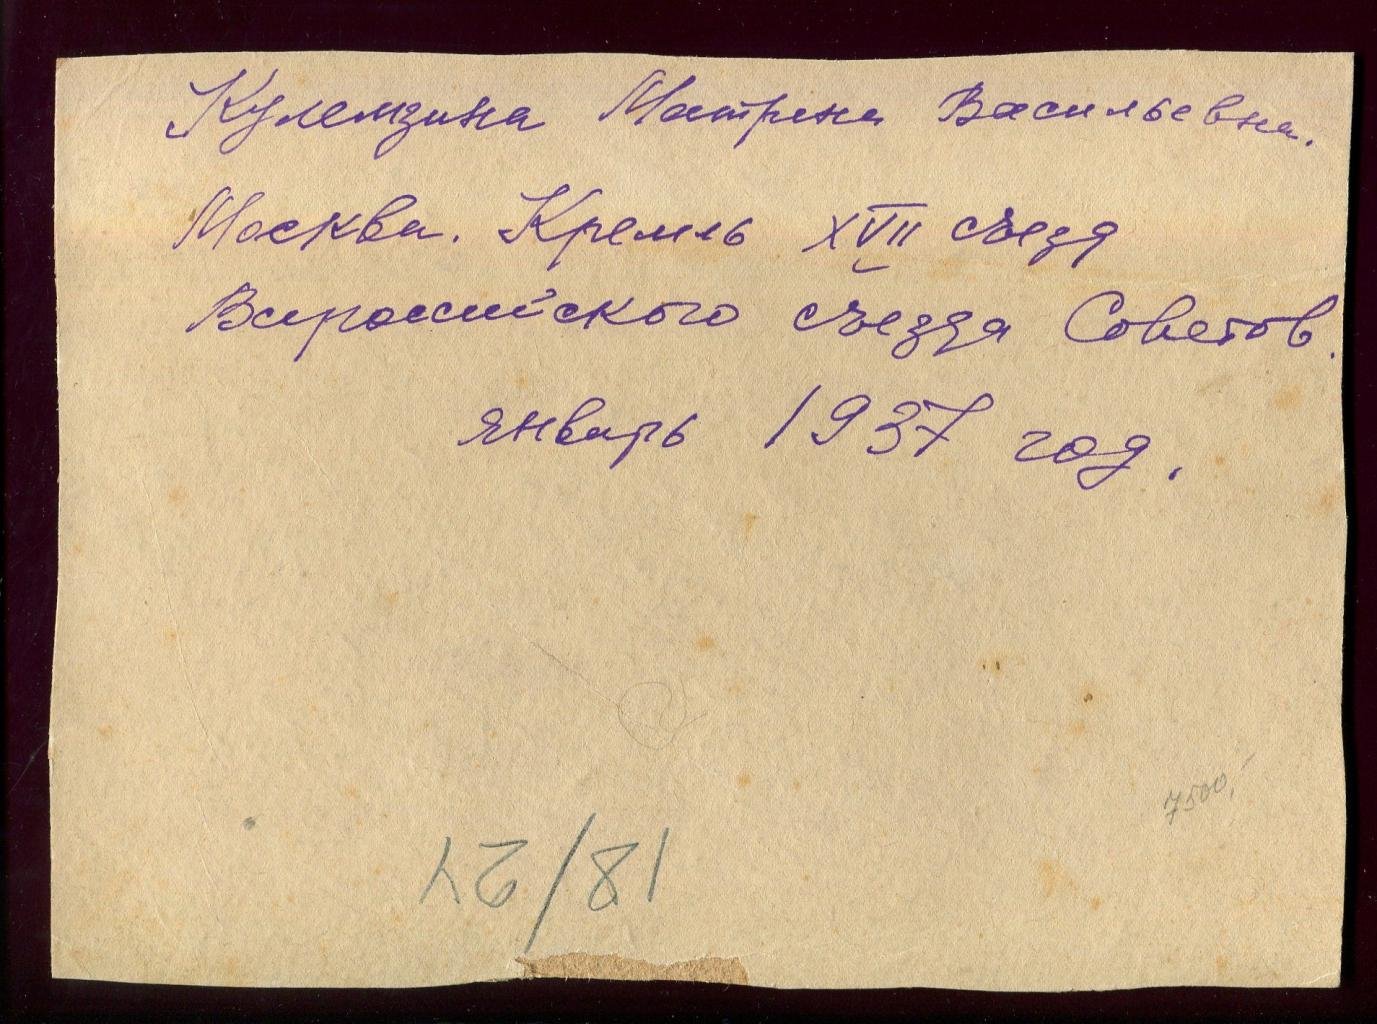 Кулемзина Матрена Васильевна.
Москва. Кремль XVII съезд
Всероссийского съезда Советов.
январь 1937 год.
7500,-
18/24